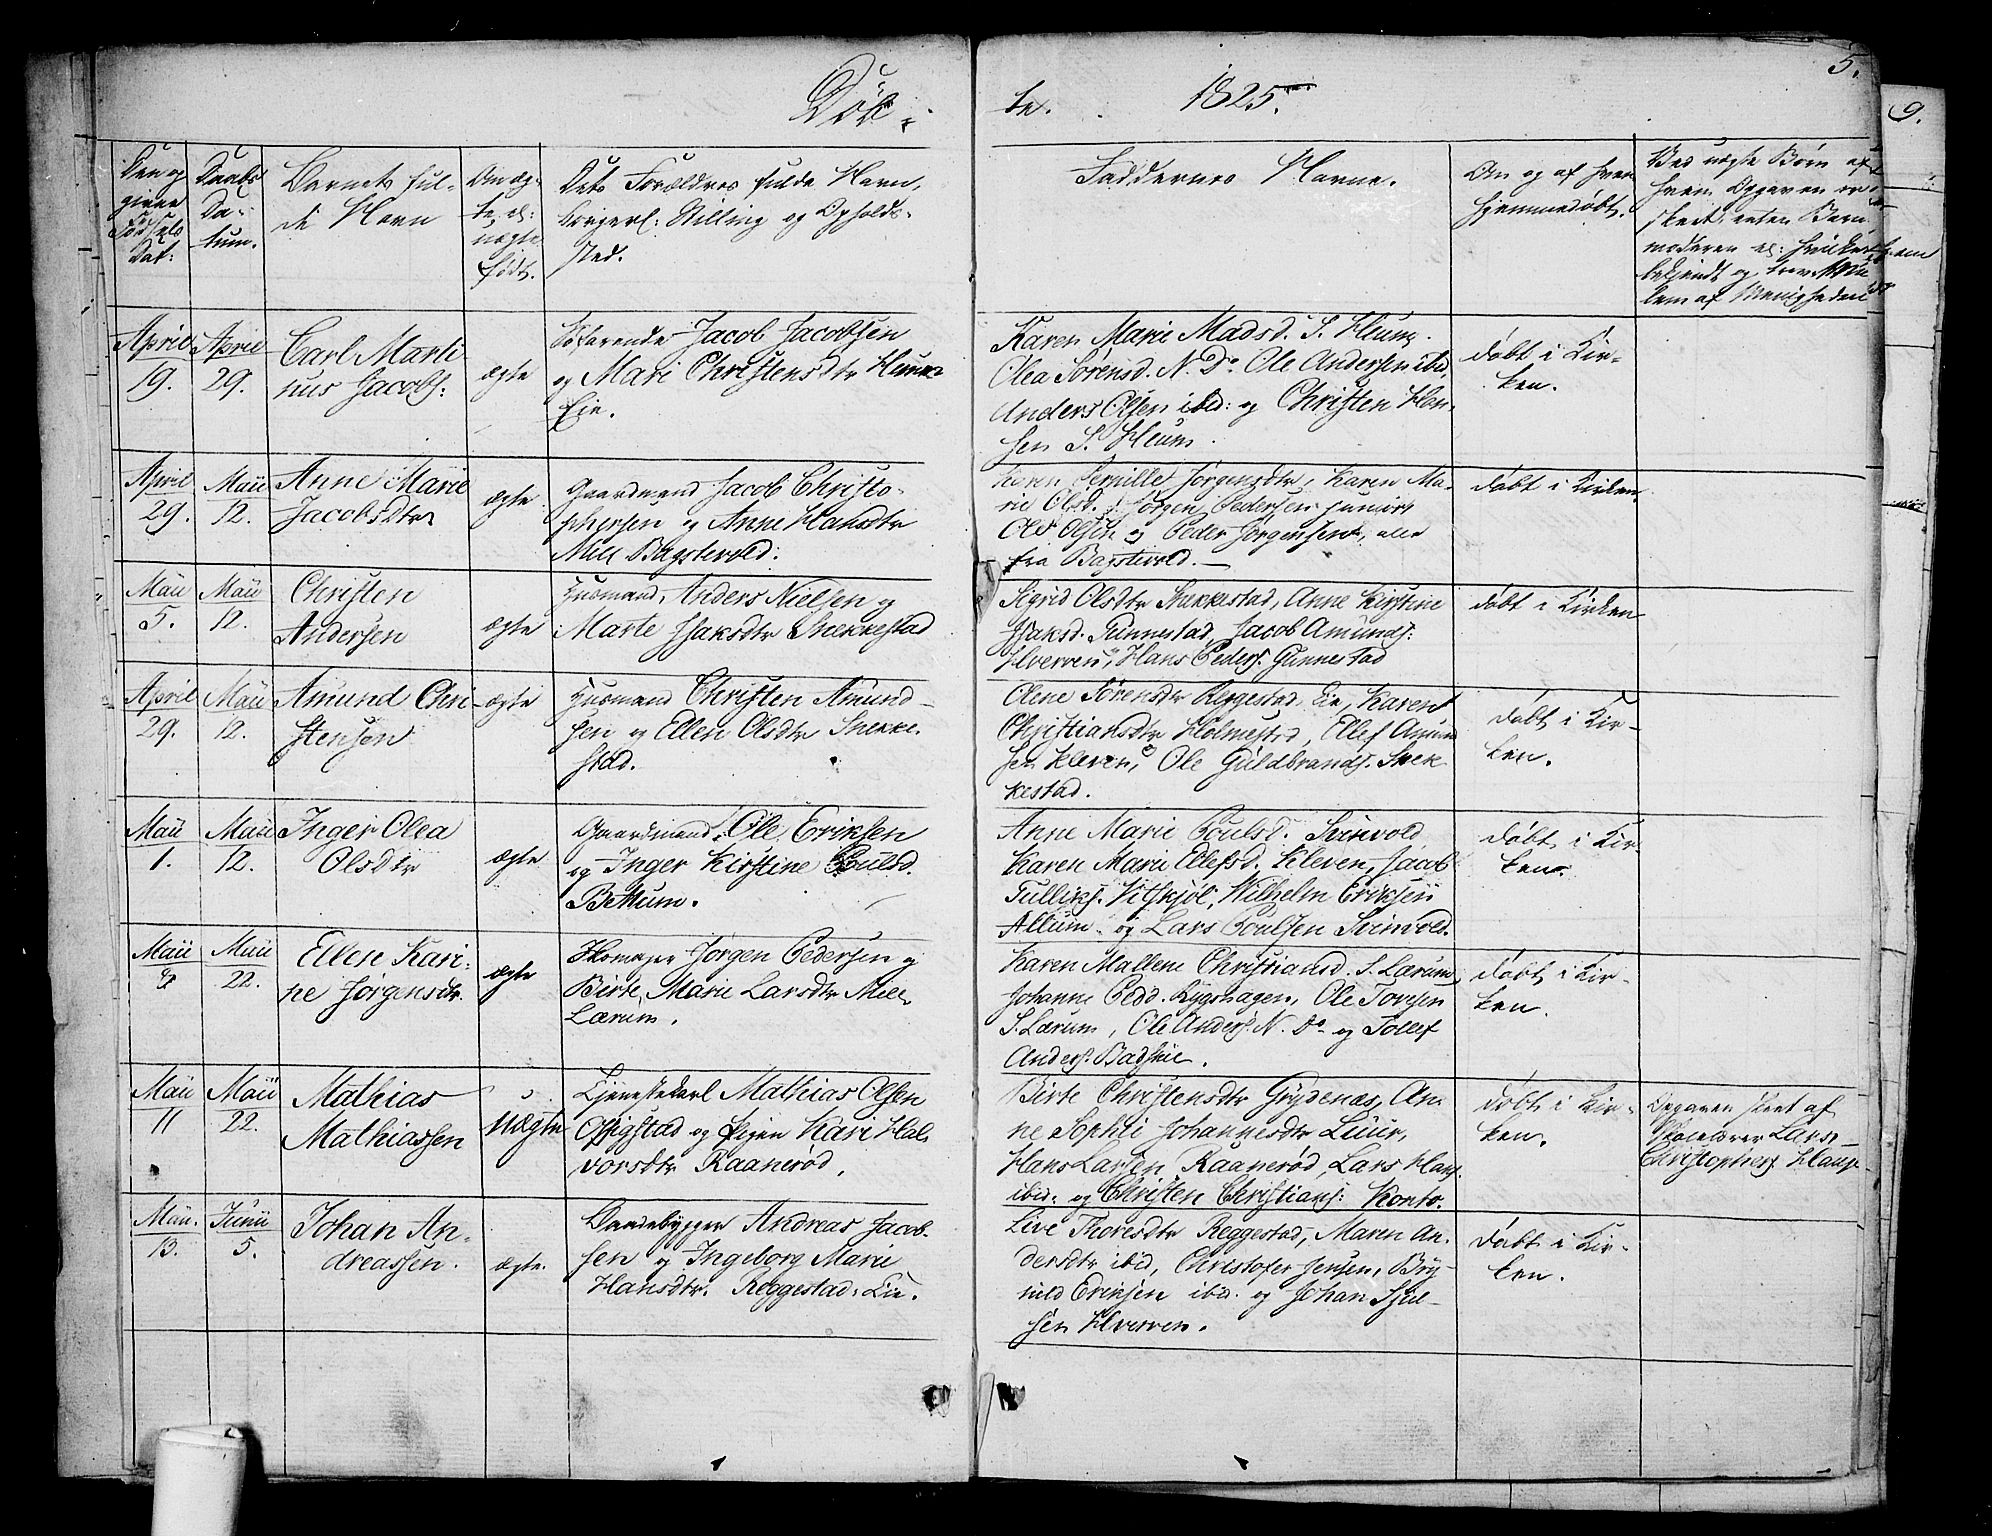 Døb-
te. 1825.
5.
9.
Den op
givne
Fødsels
Dat:
Daabs
Da-
tum.
Barnets ful-
de Navn
Om æg-
te el:
uægte
født.
Dets Forældres fulde Navn,
borgerl: Stilling og Opholds-
sted.
Faddernes Navne.
Om og af hvem
hjemmedøbt.
Ved uægte Børn af
hvem Opgaven er
skeet, enten Barne
moderen el: hvilket
bekjendt og
lem af Menigheden
April
19.
April
29.
Carl Marti
nus Jacobs:
ægte
Søfarende Jacob Jacobsen
og Mari Christensdtr Heum
Eie.
Karen Marie Madsd. S. Heum.
Olea Sørensd. N. Do Ole Andersen ibid,
Anders Olsen ibid: og Christen Han-
sen S. Heum.
døbt i Kir-
ken.
April
29.
Maii
12.
Anne Marie
Jacobsdtr
ægte
Gaardmand Jacob Christo-
phersen og Anne Hansdtr
Mell Bagstevold.
Karen Pernille Jørgensdtr, Karen Ma-
rie Olsd. Jørgen Pedersen junior
Ole Olsen og Peder Jørgensen, alle
fra Bagstevold.
døbt i Kirken.
Maii
5.
Maii
12.
Christen
Andersen
ægte
Husmand Anders Nielsen og
Marte Isaksdtr Snekkestad
Sigrid Olsdtr Snekkestad, Anne Kirstine
Isaksd. Gunnestad, Jacob Amunds:
Hverven, Hans Peders: Gunnestad
døbt i Kirken
April
29.
Maii
12.
Amund Chri
stensen
ægte
Husmand Christen Amund-
sen og Ellen Olsdtr Snekke-
stad.
Olene Sørensdtr Reggestad Eie, Karen
Christiansdtr Holmestad, Ellef Amund
sen Kleven, Ole Guldbrands: Snek
kestad.
døbt i Kir-
ken.
Maii
1.
Maii
12.
Inger Olea
Olsdtr
ægte
Gaardmand Ole Eriksen
og Inger Kirstine Poulsd.
Bettum.
Anne Marie Poulsd. Svinvold
Karen Marie Ellefsd. Kleven, Jacob
Tulliks. Vitskjøl, Wilhelm Eriksen
Allum og Lars Poulsen Svinvold.
døbt i Kir-
ken.
Maii
Maii
22.
Ellen Kari-
ne Jørgensdtr.
ægte
Skomager Jørgen Pedersen og
Birte Marie Larsdtr Mell.
Lærum.
Karen Mallene Christiansd. S. Lærum,
Johanne Pedd. Rygshagen, Ole Toresen
S. Lærum, Ole Anders. N. Do og Tollef
Anders. Badskie.
døbt i Kir-
ken.
Maii
11
Maii
22.
Mathias
Mathiassen
uægte
Tjenestekarl Mathias Olsen
Offigstad og Pigen Kari Hal-
vorsdtr Raanerød.
Birte Christensdtr Grydenæs, An-
ne Sophie Johannesdtr Luur,
Hans Larsen Raanerød, Lars Hans.
ibid. og Christen Christians: Konto.
døbt i Kir-
ken.
Opgaven skeet af
Skolelærer Lars
Christophers: Hauge
Maii.
13.
Junii
5.
Johan An-
dreassen.
ægte.
Baadebygger Andreas Jacob-
sen og Ingeborg Marie
Hansdtr. Reggestad-Eie.
Live Thoresdtr Reggestad, Maren An-
dersdtr ibid, Christofer Jensen, Bry-
nild Eriksen ibid. og Johan Sjul-
sen Hverven.
døbt i Kir-
ken.